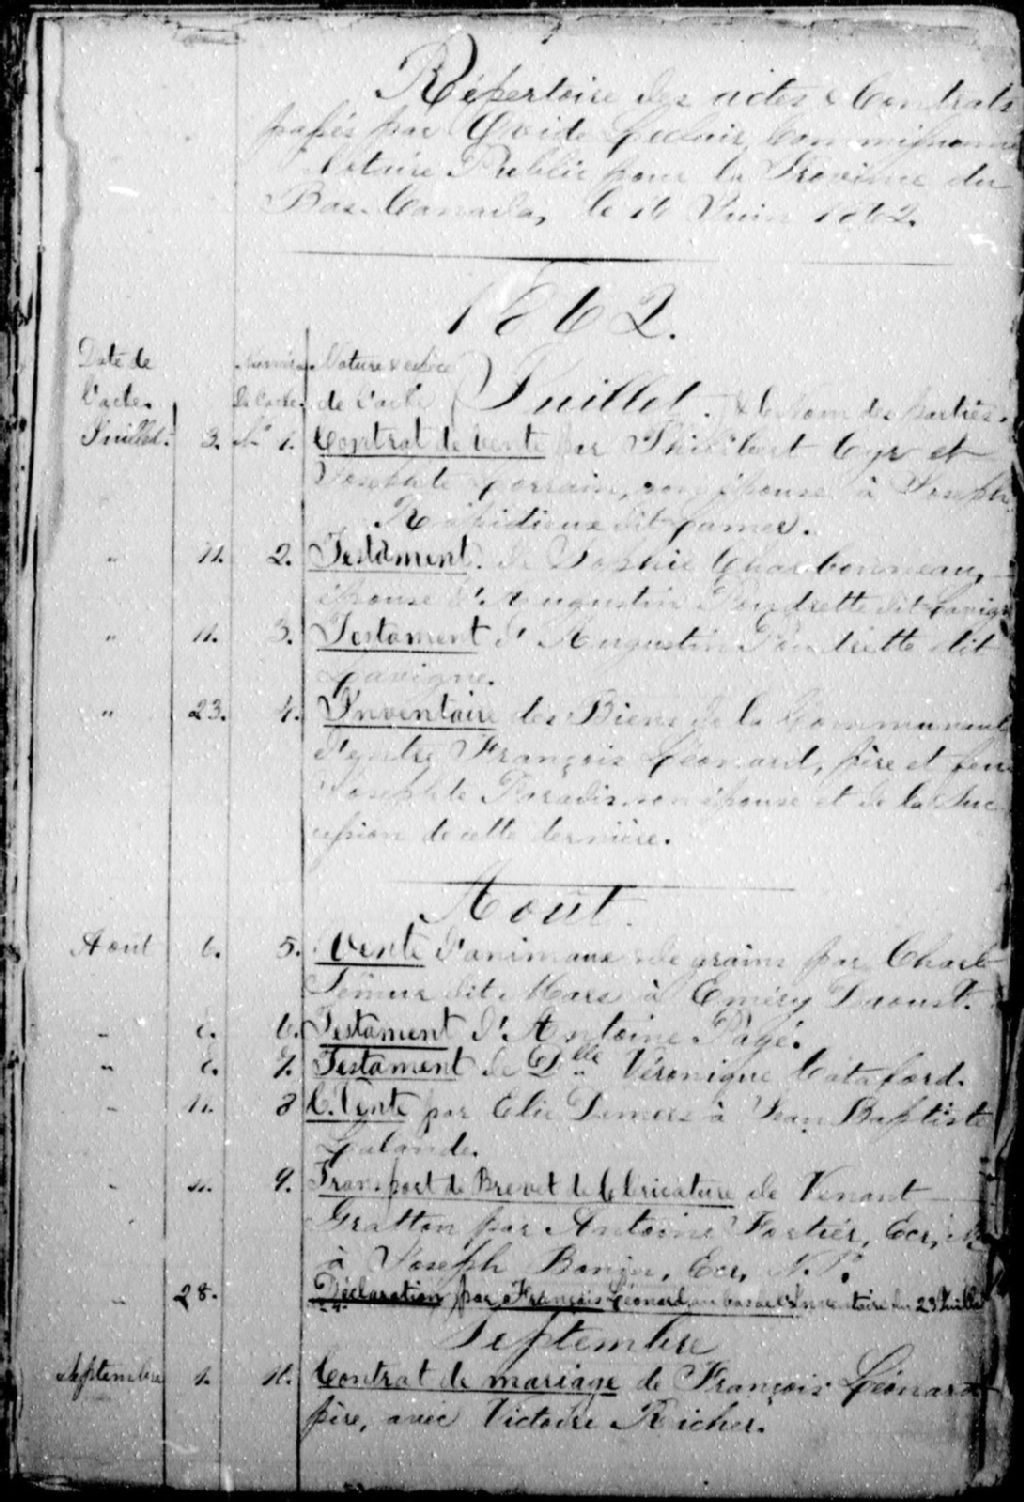 Répertoire des actes & Contrats
passés par Ovide Leclair, Commissionné
Notaire Public pour la Province du
Bas-Canada, le 16 Juin 1862.
1862.
Date de l'acte. Numéro De l'acte. Nature & espèce de l'acte Juillet. & le Nom des parties.
Juillet. 3. No 1. Contrat de Vente par Philibert Cyr et
Josephte Lorrain, son épouse à Joseph
Robidoux dit
" 11. 2. Testament de Sophie Charbonneau,
épouse d'Augustin Poudrette dit Lavigne
" 11. 3. Testament d'Augustin Poudrette dit
Lavigne.
" 23. 4. Inventaire des Biens de la Communauté
d'entre François Léonard, père et feue
Josephte Paradis son épouse et de la Suc
cession de cette dernière.
Août.
Aout 6. 5. Vente d'animaux & de grains par
dit à Eméry Daoust.
" 6. Testament d'Antoine Pagé.
" 7. Testament de Dlle Véronique Catafard.
" 11. 8 C. Vente par Elie Demers à Jean Baptiste
Lalonde.
" 9. Transport de Brevet de Cléricature de Venant
Gratton par Antoine Fortier, Ecr,
à Joseph Ecr, N.P.
" 28. Déclaration par François Léonard, au bas de l'Inventaire du 23 Juillet
Septembre
Septembre 1. Contrat de mariage de François Léonard
père, avec Victoire Richer.